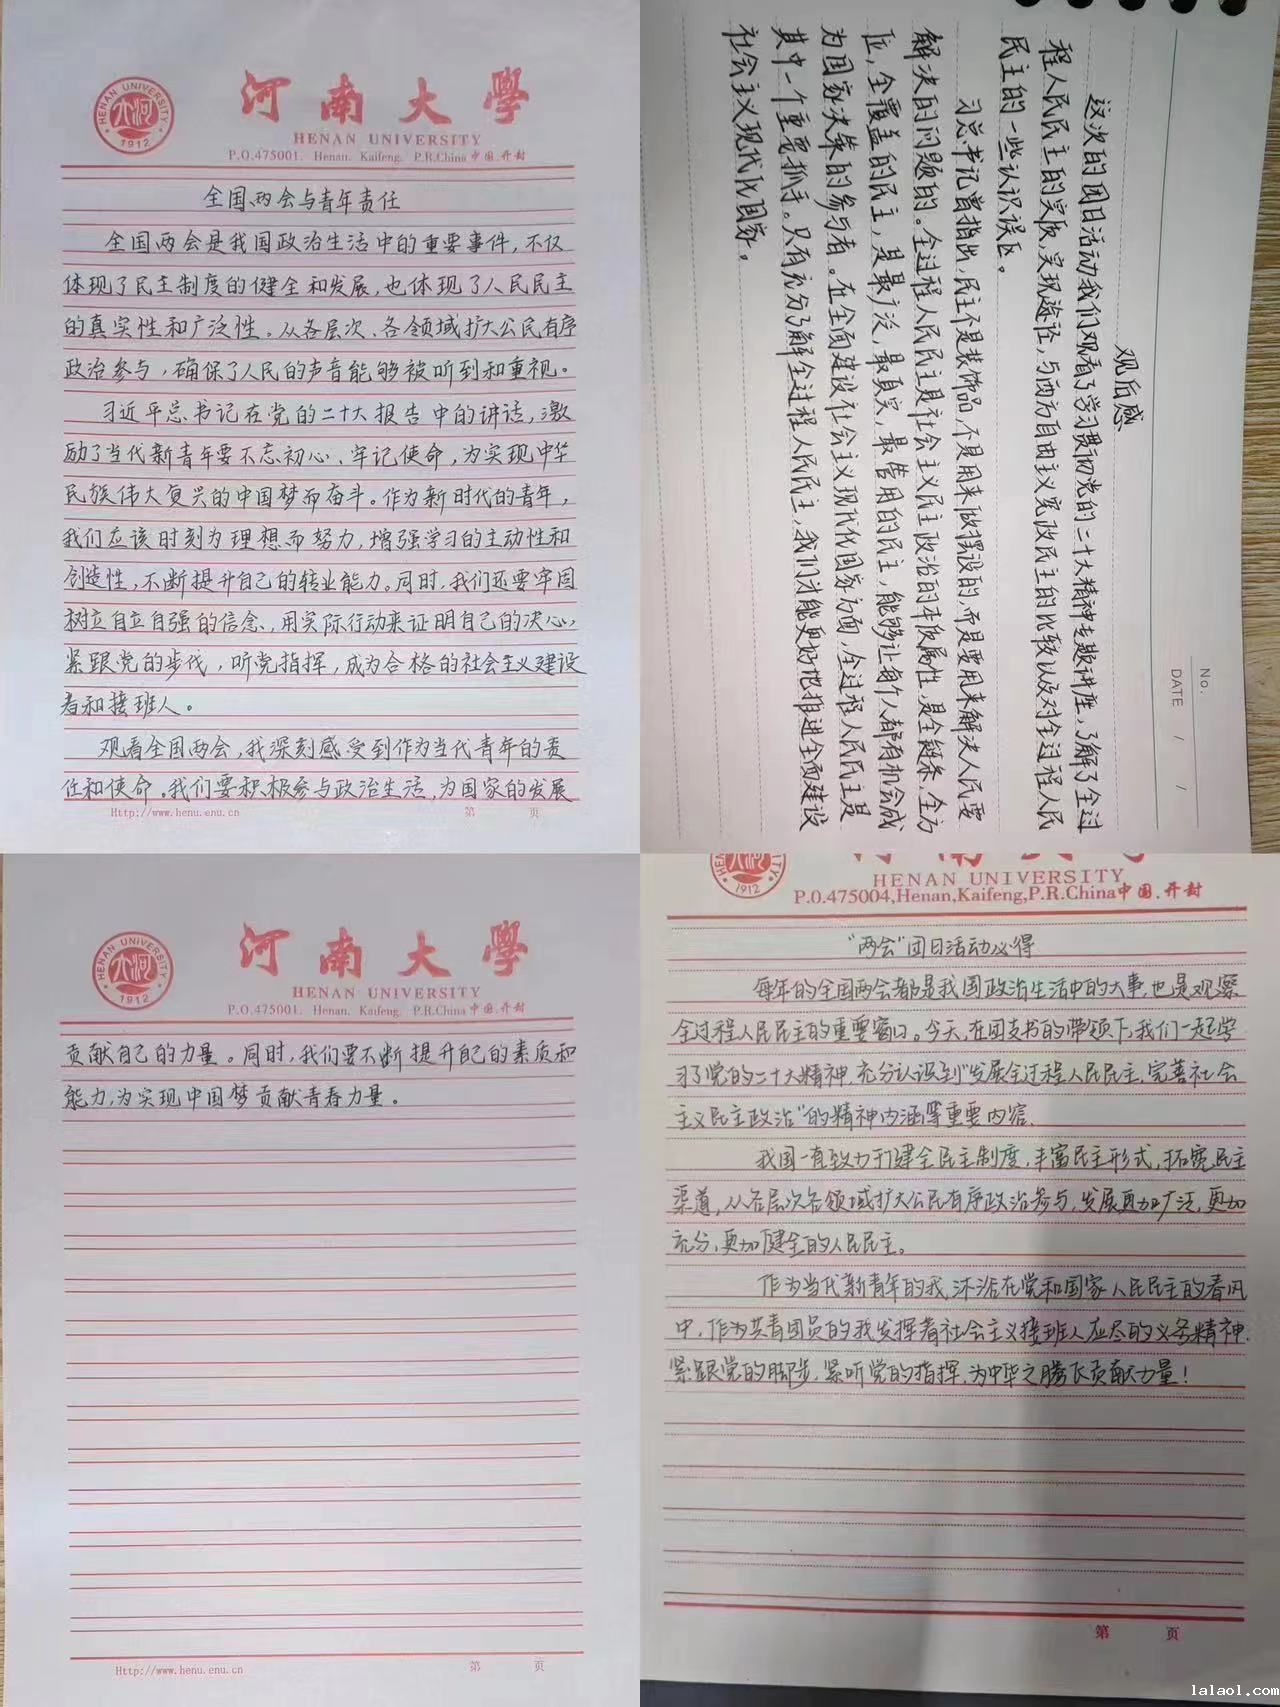 河南大學
HENAN UNIVERSITY
1912
HENAN UNIVERSITY
P.O.475001. Henan. Kaifeng. P.R.China 中国.开封
全国两会与青年责任
全国两会是我国政治生活中的重要事件,不仅
体现了民主制度的健全和发展,也体现了人民民主
的真实性和广泛性。从各层次、各领域扩大公民有序
政治参与,确保了人民的声音能够被听到和重视。
习近平总书记在党的二十大报告中的讲话,激
励了当代新青年要不忘初心、牢记使命,为实现中华
民族伟大复兴的中国梦而奋斗。作为新时代的青年,
我们应该时刻为理想而努力,增强学习的主动性和
创造性,不断提升自己的转业能力。同时,我们还要牢固
树立自立自强的信念,用实际行动来证明自己的决心,
紧跟党的步伐,听党指挥,成为合格的社会主义建设
者和接班人。
观看全国两会,我深刻感受到作为当代青年的责
任和使命。我们要积极参与政治生活,为国家的发展
Http://www.henu.enu.cn
第 页
No.
DATE / /
观后感
这次的团日活动我们观看了学习贯彻党的二十大精神专题讲座,了解了全过
程人民民主的实质,实现途径,与西方自由主义宪政民主的比较以及对全过程人民
民主的一些认识误区。
习总书记曾指出,民主不是装饰品,不是用来做摆设的,而是要用来解决人民要
解决的问题的。全过程人民民主是社会主义民主政治的本质属性,是全链条、全方
位,全覆盖的民主,是最广泛,最真实,最管用的民主,能够让每个人都有机会成
为国家决策的参与者。在全面建设社会主义现代化国家方面,全过程人民民主是
其中一个重要抓手。只有充分了解全过程人民民主,我们才能更好地推进全面建设
社会主义现代化国家。
河南大學
HENAN UNIVERSITY
1912
HENAN UNIVERSITY
P.O.475001. Henan. Kaifeng. P.R.China 中国.开封
贡献自己的力量。同时,我们要不断提升自己的素质和
能力,为实现中国梦贡献青春力量。
Http://www.henu.enu.cn
第 页
1912
HENAN UNIVERSITY
P.O.475004,Henan,Kaifeng,P.R.China中国.开封
“两会”团日活动心得
每年的全国两会都是我国政治生活中的大事,也是观察
全过程人民民主的重要窗口。今天,在团支书的带领下,我们一起学
习了党的二十大精神,充分认识到“发展全过程人民民主,完善社会
主义民主政治”的精神内涵等重要内容.
我国一直致力于健全民主制度,丰富民主形式,拓宽民主
渠道,从各层次各领域扩大公民有序政治参与,发展更加广泛,更加
充分,更加健全的人民民主。
作为当代新青年的我,沐浴在党和国家人民民主的春风
中,作为共青团员的我发挥着社会主义接班人应尽的义务精神.
紧跟党的脚步,紧听党的指挥,为中华之腾飞贡献力量!
第 页
lalaol.com